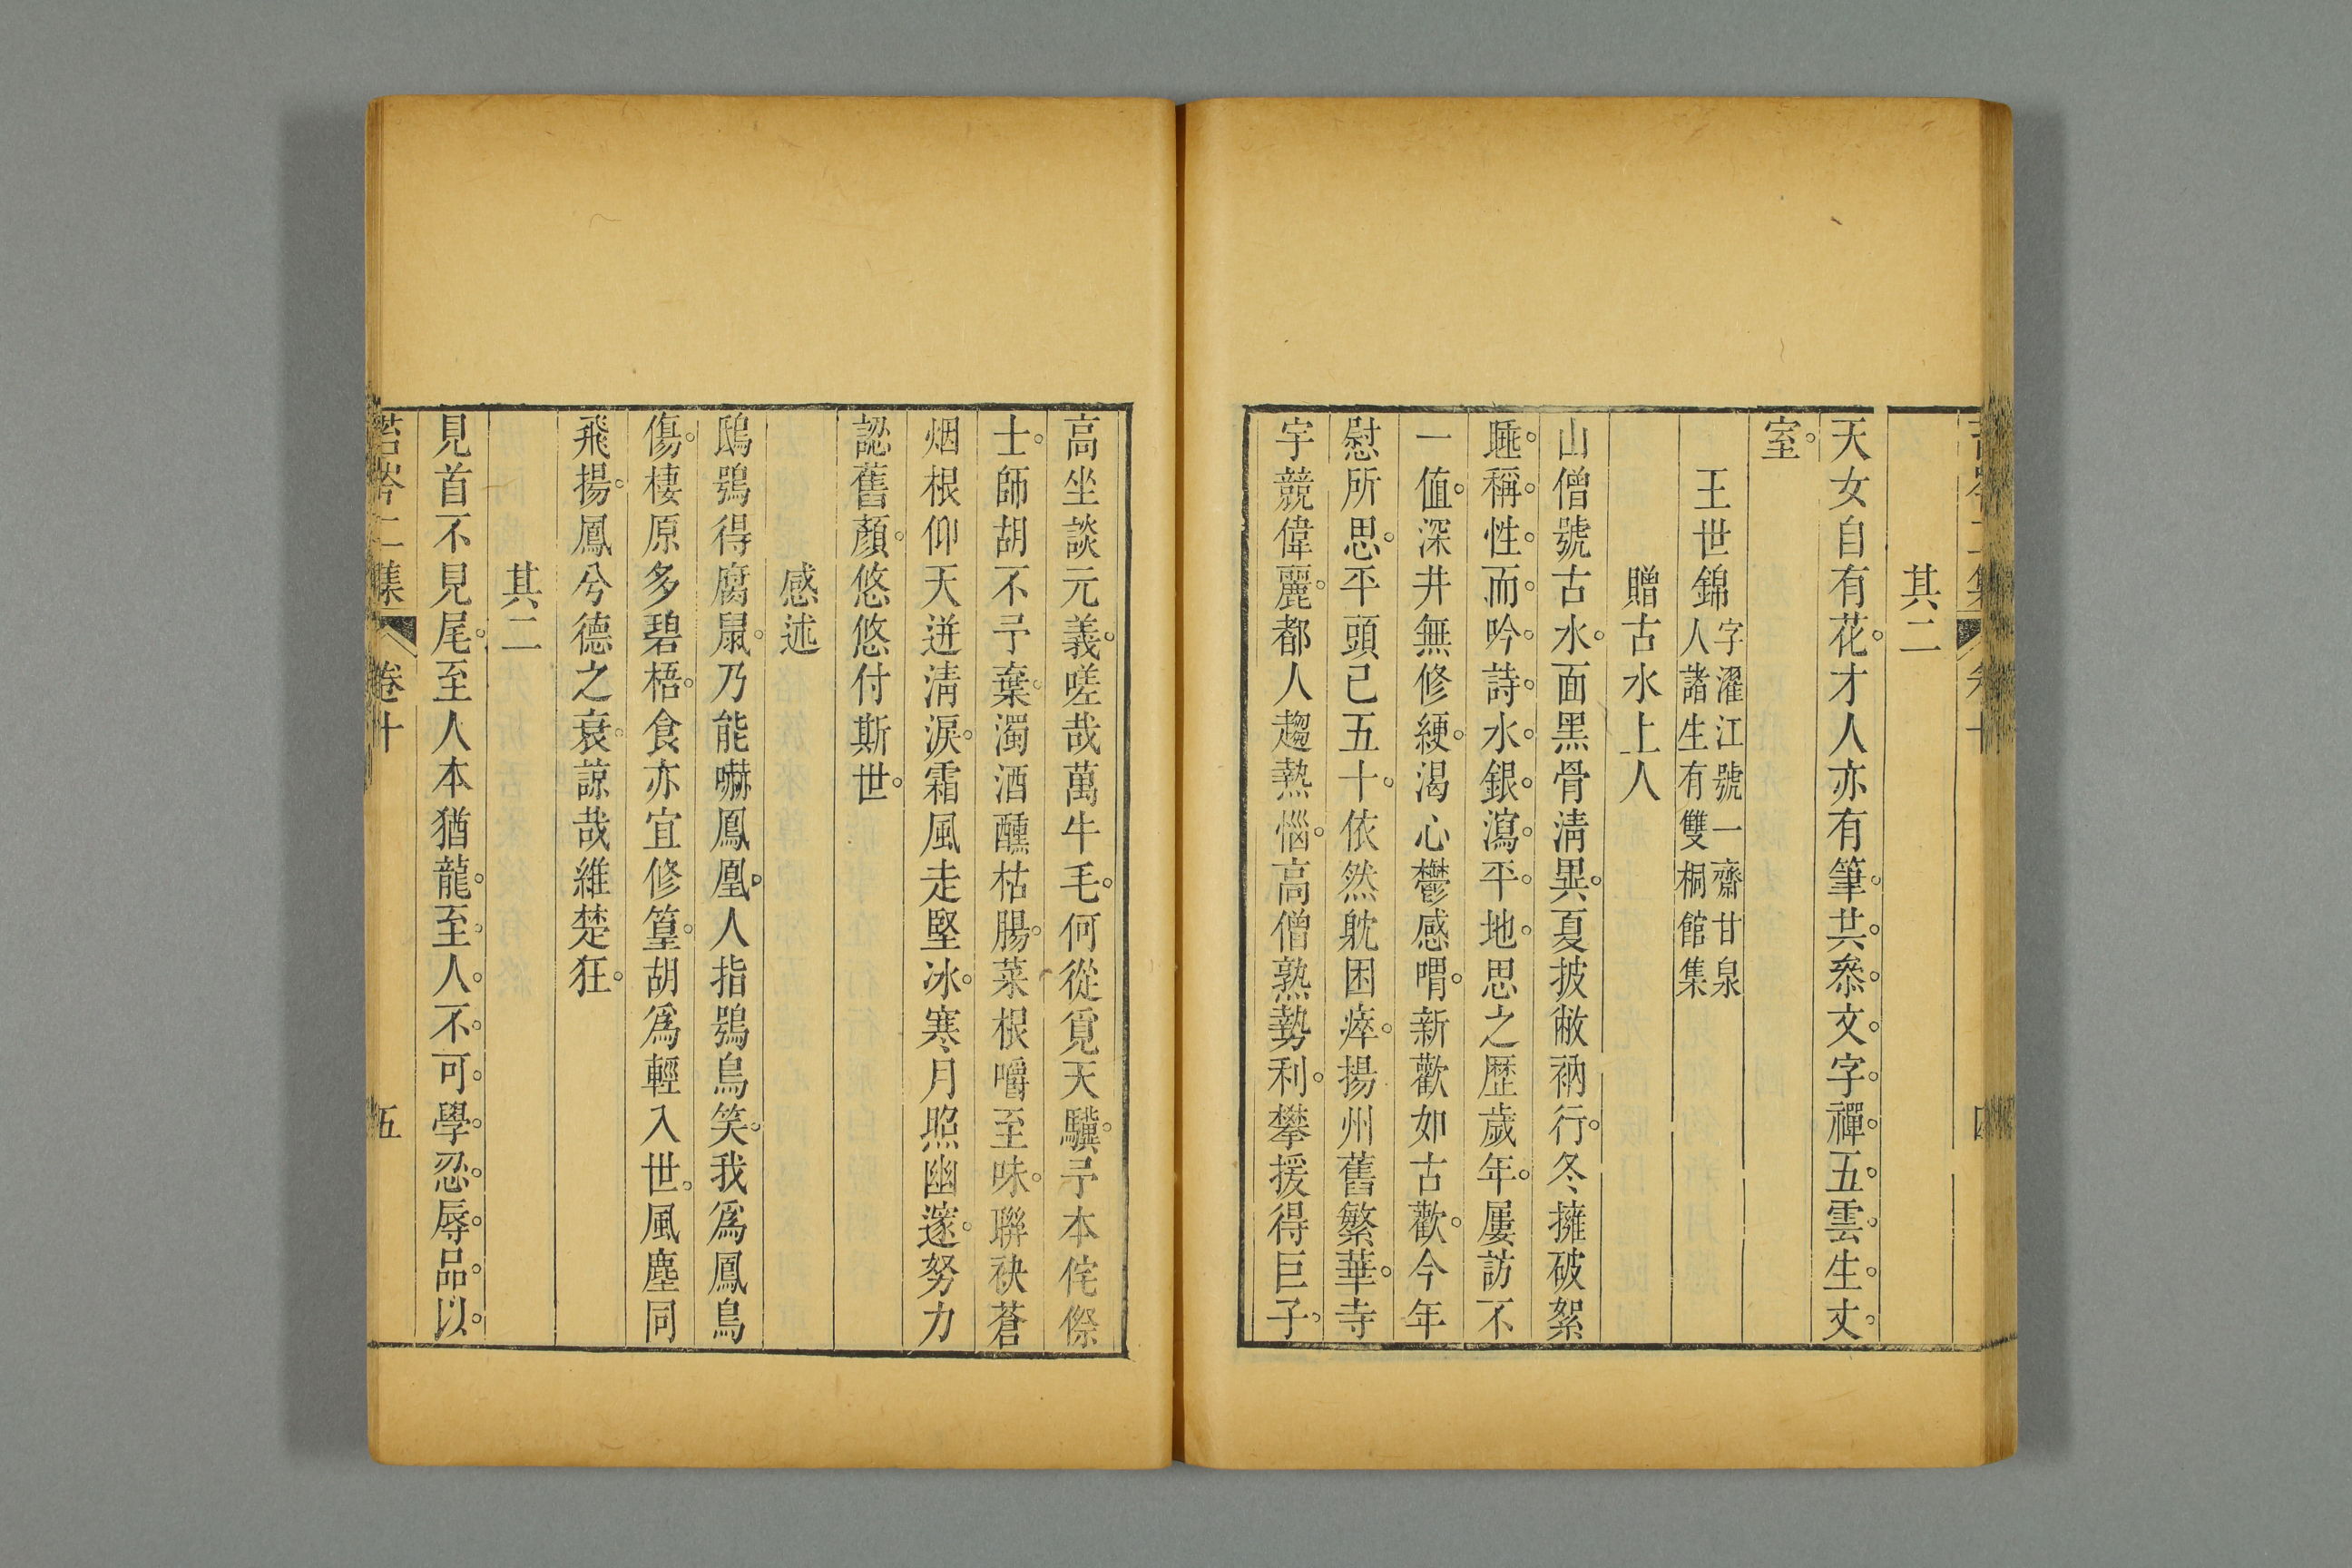 其二
天女自有花才人亦有筆共叅文字禪五雲生丈
室
王世錦字濯江號一齋甘泉人諸生有雙桐館集
贈古水上人
山僧號古水面黑骨淸異夏披敝衲行冬擁破絮
睡稱性而吟詩水銀瀉平地思之歷歲年屢訪不
一値深井無修綆渴心鬱感喟新歡如古歡今年
慰所思平頭已五十依然躭困瘁揚州舊繁華寺
宇競偉麗都人趨熱惱高僧熟勢利攀援得巨子
高坐談元義嗟哉萬牛毛何從覓天驥予本侘傺
士師胡不予棄濁酒醺枯腸菜根嚼至味聯袂蒼
烟根仰天迸淸淚霜風走堅冰寒月照幽邃努力
認舊顏悠悠付斯世
感述
鴟鴞得腐鼠乃能嚇鳳凰人指鴞鳥笑我爲鳳鳥
傷棲原多碧梧食亦宜修篁胡爲輕入世風塵同
飛揚鳳兮德之衰諒哉維楚狂
其二
見首不見尾至人本猶龍至人不可學忍辱品以
苔岑二集 卷十 五